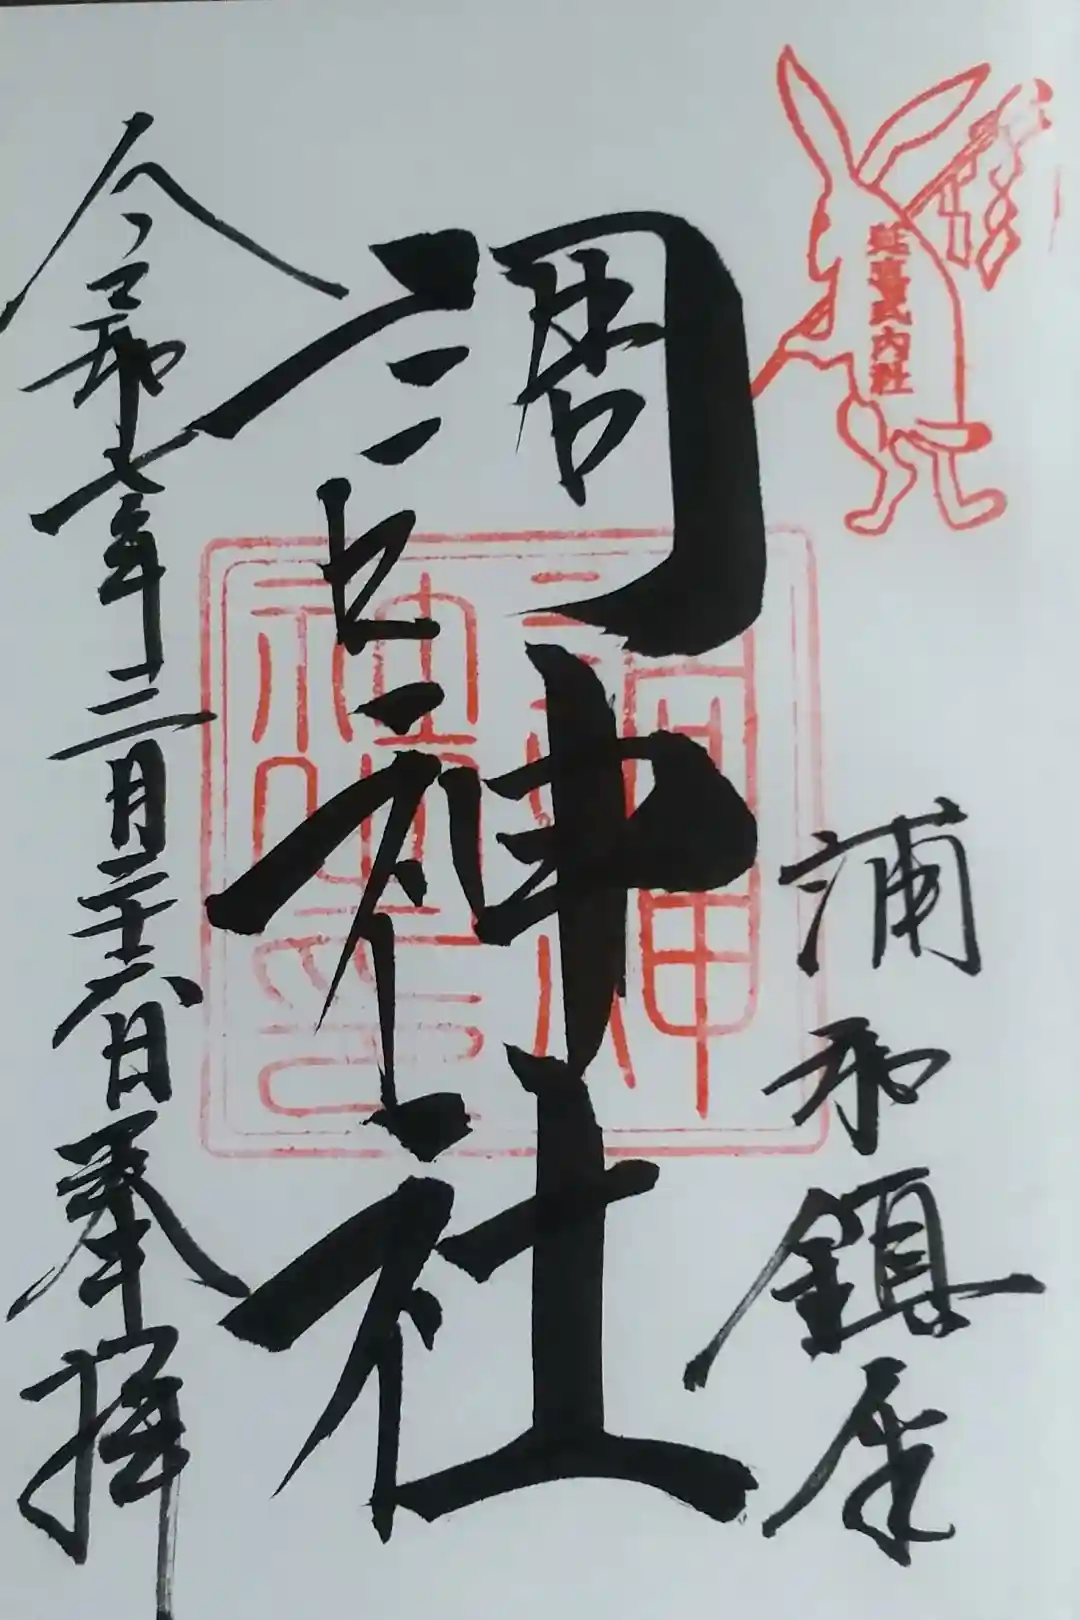 延喜式内社
浦和鎮座
調神社
調神社印
令和七年二月二十六日奉拝